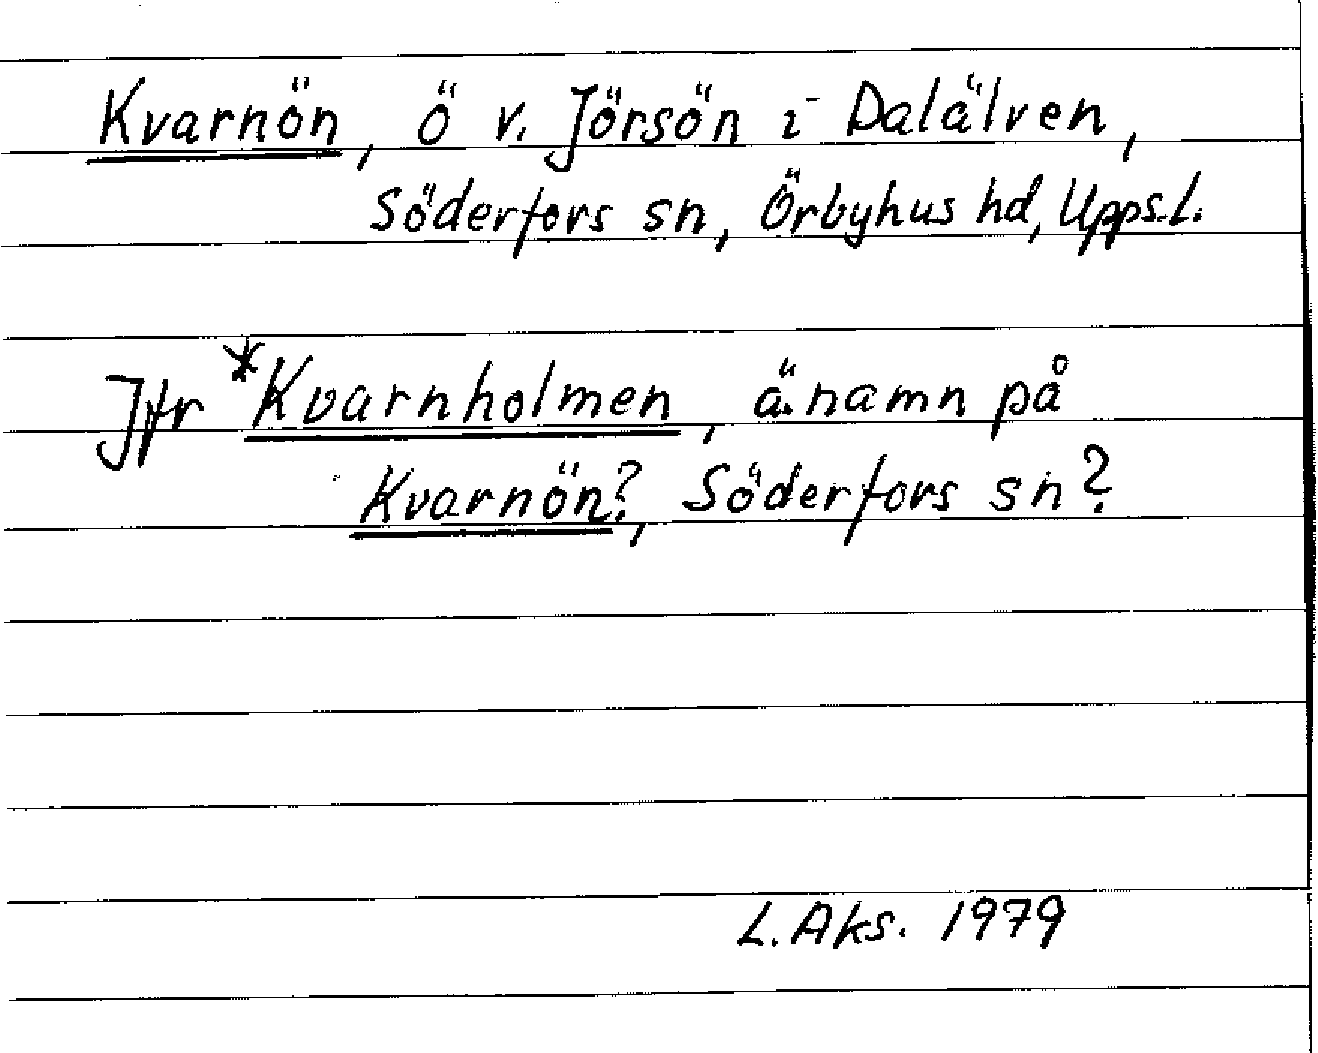 Kvarnön, ö v. Jörsön i Dalälven,
Söderfors sn, Örbyhus hd, Upps.l.
Jfr *Kvarnholmen, ä.namn på
Kvarnön?, Söderfors sn?
L.Aks. 1979